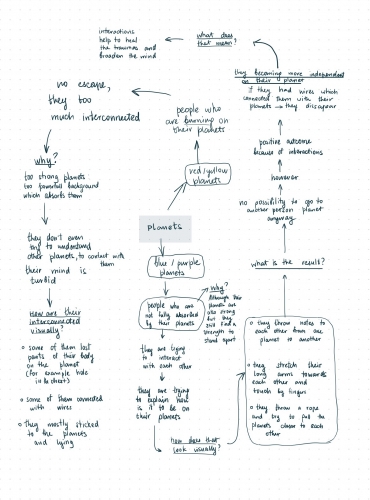 planets
red/yellow
planets
people who
are burning on
their planets
no escape,
they too
much interconnected
why?
too strong planets
too powerfull background
which absorts them
they don't even
try to understand
other planets, to contact with
them
their mind is
turbid
How are their
interconnected
visually?
• some of them lost
parts of their body
on the planet
(for example hole
in the chest)
• some of them connected
with wires
• they mostly sticked
to the planets
and lying
blue / purple
planets
people who are
not fully absorbed
by their planets
why?
Although their
planets are
also strong
but they
still find a
strength to
stand apart
they are trying
to interact
with each other
they are trying
to explain how
is it to be on
their planets
how does that
look visually?
• they throw notes to
each other from one
planet to another
• they stretch their
long arms towards
each other and
touch by fingers
• they throw a rope
and try to pull the
planets closer to each
other
what is the result?
no possibility to go to
another person planet
anyway
however
positive outcome
because of interactions
they becoming more independent
on their planet
if they had wires which
connected them with their
planets → they dissapear
what does
that mean?
interactions
help to heal
the traumas and
broaden the mind